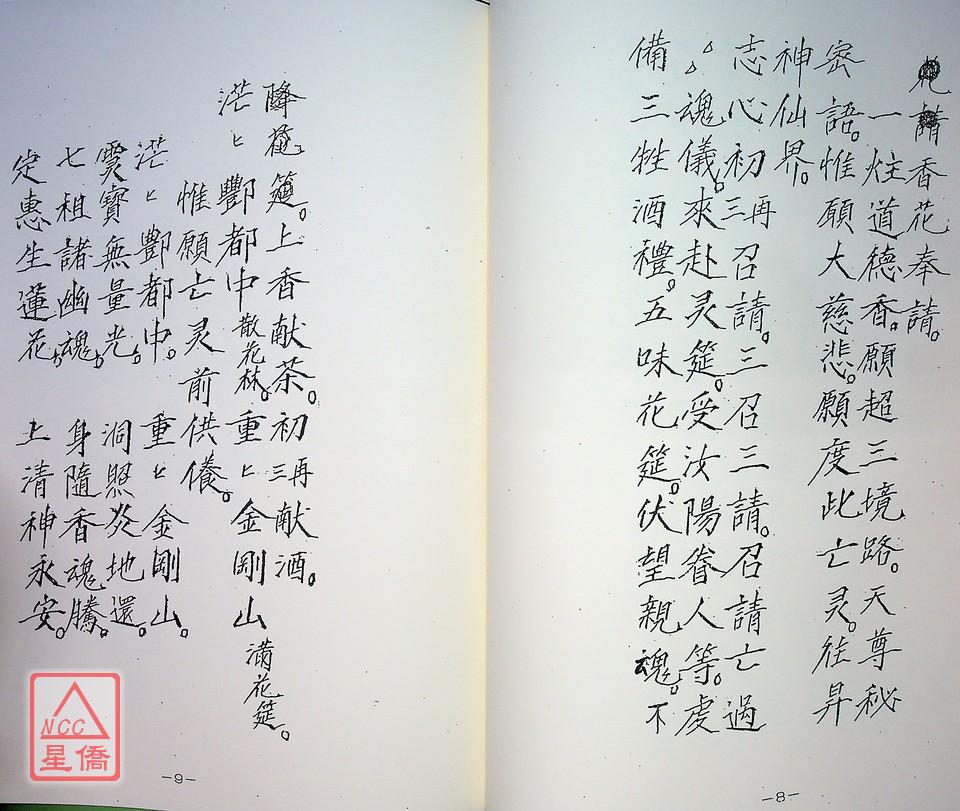 請香花奉請。
一炷道德香。願超三境路。天尊秘
密語。惟願大慈悲。願度此亡灵。往昇
神仙界。
志心初再三召請。三召三請。召請亡過
△△魂儀。來赴灵筵。受汝陽眷人等。虔
備三牲酒禮。五味花筵。伏望親魂。不
-8-
降筵。上香献茶。初再三献酒。
茫匕酆都中散花林。重匕金剛山滿花筵。
惟願亡灵前供養。
茫匕酆都中。重匕金剛山。
霊寶無量光。洞照炎地還。
七祖諸幽魂。身隨香魂騰。
定惠生蓮花。上清神永安。
-9-
NCC
星僑